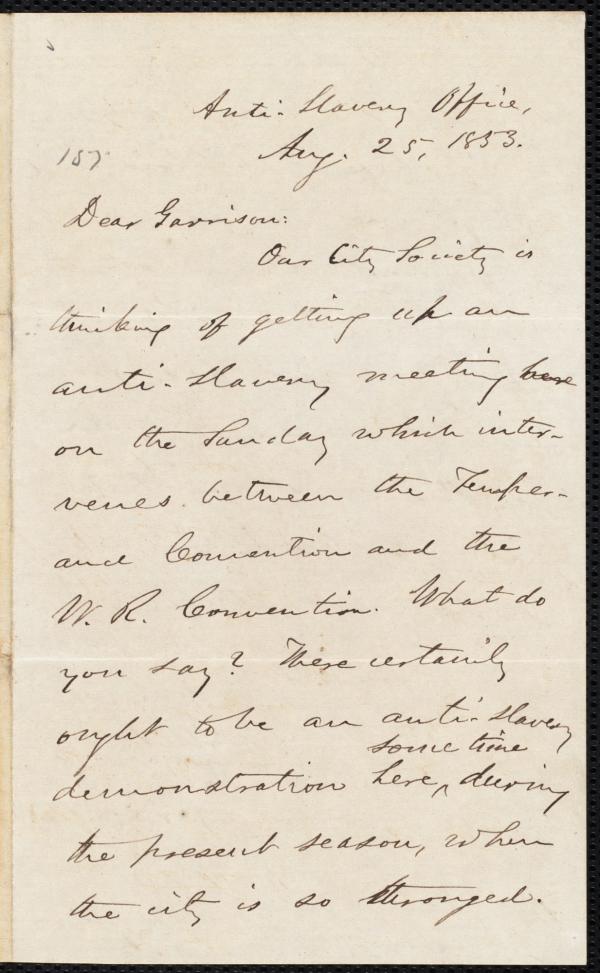 Anti-Slavery Office,
Aug. 25, 1853.
157
Dear Garrison:
Our City Society is
thinking of getting up an
anti-slavery meeting here
on the Sunday which inter-
venes between the Temper-
ance Convention and the
W. R. Convention. What do
you say? There certainly
ought to be an anti-slavery
some time
demonstration here, ^ during
the present season, when
the city is so thronged.